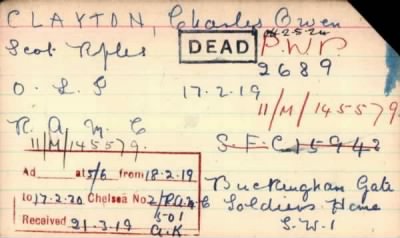 CLAYTON, Charles Owen
Scot Rifles
DEAD
24.5.24
P.W.P
2689
O.L.S
17.2.19
11/M/145579.
R.A.M.C
11/M/145579.
S.F.C 15943
Ad at 5/6 from 18.2.19
to 17.2.20 Chelsea No. 2/RAMC
5-01
Received 21.3.19 G.K
Buckingham Gate
Soldiers Home
S.W.1